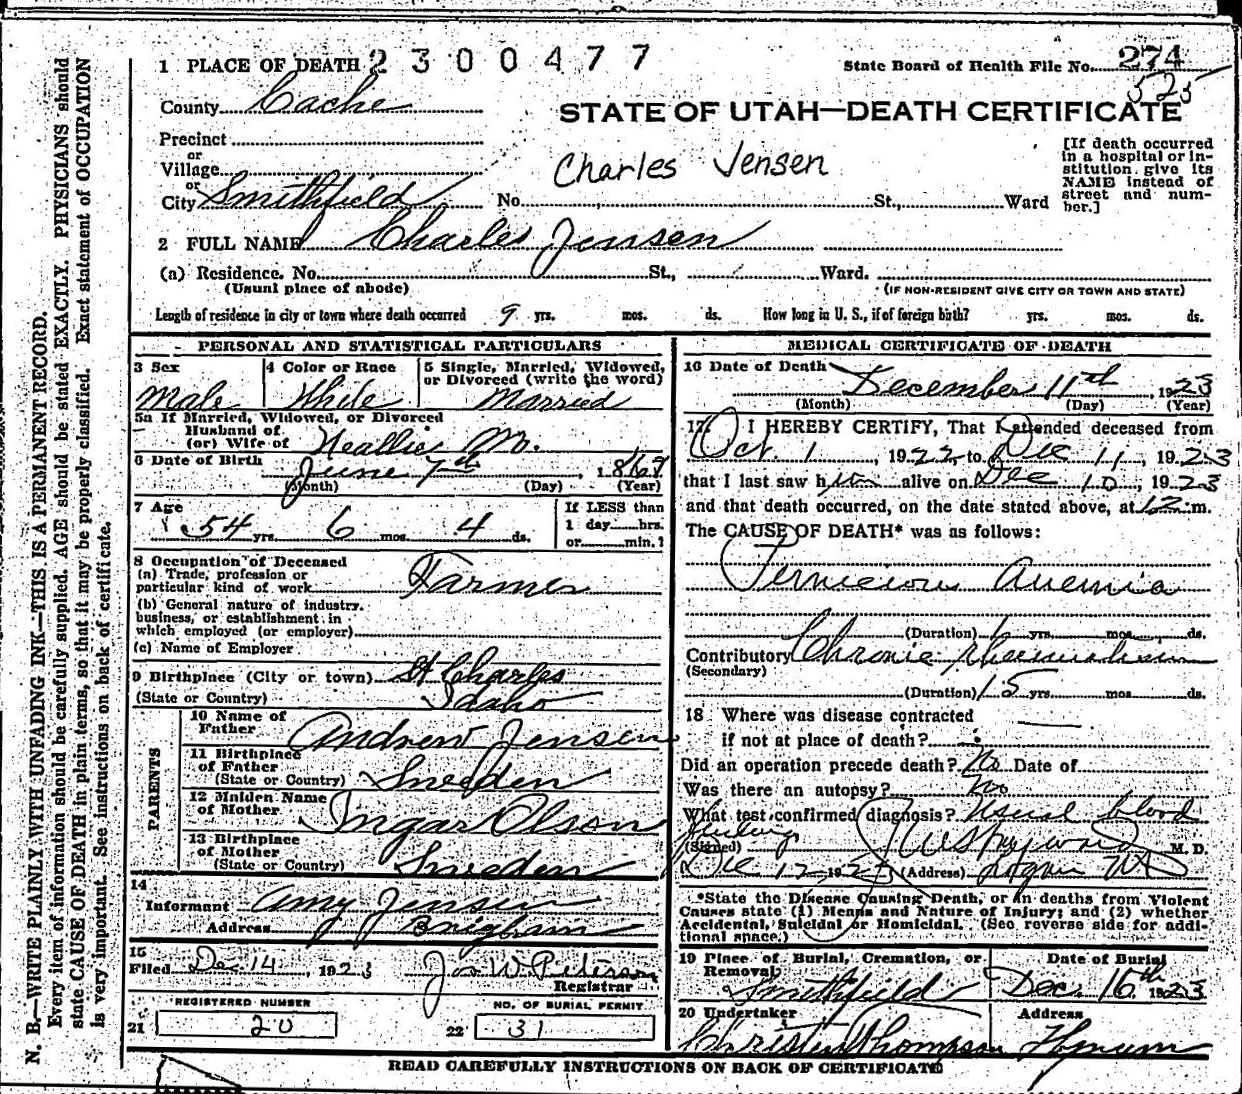 1 PLACE OF DEATH 2300477
State Board of Health File No. 274
525
County Cache
STATE OF UTAH—DEATH CERTIFICATE
Precinct
or
Village
or
City Smithfield No. St., Ward
Charles Jensen
[If death occurred
in a hospital or in-
stitution give its
NAME instead of
street and num-
ber.]
2 FULL NAME Charles Jensen
(a) Residence. No. St., Ward.
(Usual place of abode) (IF NON-RESIDENT GIVE CITY OR TOWN AND STATE)
Length of residence in city or town where death occurred 9 yrs. mos. ds. How long in U. S., if of foreign birth? yrs. mos. ds.
PERSONAL AND STATISTICAL PARTICULARS
3 Sex 4 Color or Race 5 Single, Married, Widowed,
or Divorced (write the word)
Male White Married
5a If Married, Widowed, or Divorced
Husband of
(or) Wife of Neallie M.
6 Date of Birth June 7th, 1869
(Month) (Day) (Year)
7 Age If LESS than
54 yrs. 6 mos. 4 ds. 1 day hrs.
or min.?
8 Occupation of Deceased
(a) Trade, profession or
particular kind of work Farmer
(b) General nature of industry.
business, or establishment in
which employed (or employer)
(c) Name of Employer
9 Birthplace (City or town) St Charles
(State or Country) Idaho
PARENTS
10 Name of
Father Andrew Jensen
11 Birthplace
of Father
(State or Country) Sweden
12 Maiden Name
of Mother Ingar Olson
13 Birthplace
of Mother
(State or Country) Sweden
14
Informant Amy Jensen
Address Brigham
15
Filed Dec 14, 1923 Jos W. Peterson
Registrar
REGISTERED NUMBER NO. OF BURIAL PERMIT
21 20 22 31
MEDICAL CERTIFICATE OF DEATH
16 Date of Death December 11th, 1923
(Month) (Day) (Year)
17. I HEREBY CERTIFY, That I attended deceased from
Oct. 1, 1922, to Dec 11, 1923
that I last saw him alive on Dec 10, 1923
and that death occurred, on the date stated above, at 12 m.
The CAUSE OF DEATH* was as follows:
Pernicious Anemia
(Duration) 1 yrs. mos. ds.
Contributory Chronic rheumatism
(Secondary)
(Duration) 15 yrs. mos. ds.
18 Where was disease contracted
if not at place of death?
Did an operation precede death? No Date of
Was there an autopsy? no
What test confirmed diagnosis? Usual blood
findings
(Signed) M. D.
Dec 12 1923 (Address) Logan Ut
*State the Disease Causing Death, or in deaths from Violent
Causes state (1) Means and Nature of Injury; and (2) whether
Accidental, Suicidal or Homicidal. (See reverse side for addi-
tional space.)
19 Place of Burial, Cremation, or Date of Burial
Removal
Smithfield Dec. 16th 1923
20 Undertaker Address
Christen Thompson Hyrum
READ CAREFULLY INSTRUCTIONS ON BACK OF CERTIFICATE
N. B.—WRITE PLAINLY WITH UNFADING INK—THIS IS A PERMANENT RECORD.
Every item of information should be carefully supplied. AGE should be stated EXACTLY. PHYSICIANS should
state CAUSE OF DEATH in plain terms, so that it may be properly classified. Exact statement of OCCUPATION
is very important. See instructions on back of certificate.